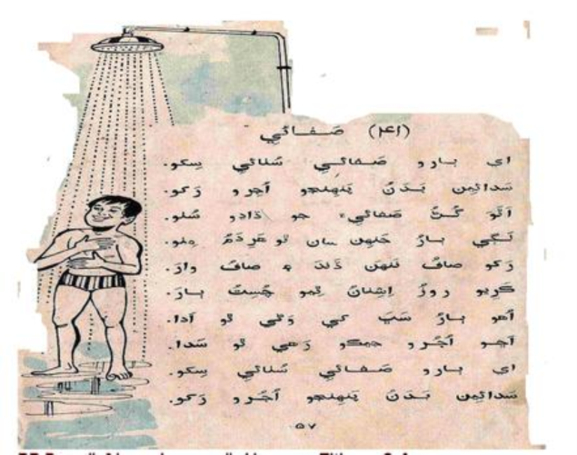 صفائي
اي ٻارو صفائي سٺائي سکو.
سدائين بدن پنهنجو اڇرو رکو.
اٿو گڻ صفائيءَ جو ڏاڍو سٺو.
لڳي ٻارُ جنهن سان ٿو هردم مِٺو.
رکو صاف ننهن ڏند ۽ صاف وار.
ڪريو روز اِشنان ٿيو چست ٻار.
اهو ٻارُ سڀ کي وڻي ٿو ادا.
اڇو اڇرو چمڪو رهي ٿو سدا.
اي ٻارو صفائي سٺائي سکو.
سدائين بدن پنهنجو اڇرو رکو.
٥٧